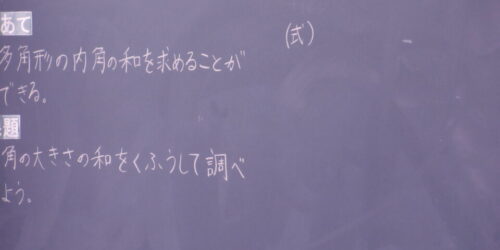 あて
多角形の内角の和を求めることが
できる。
題
角の大きさの和をくふうして調べ
よう。
(式)